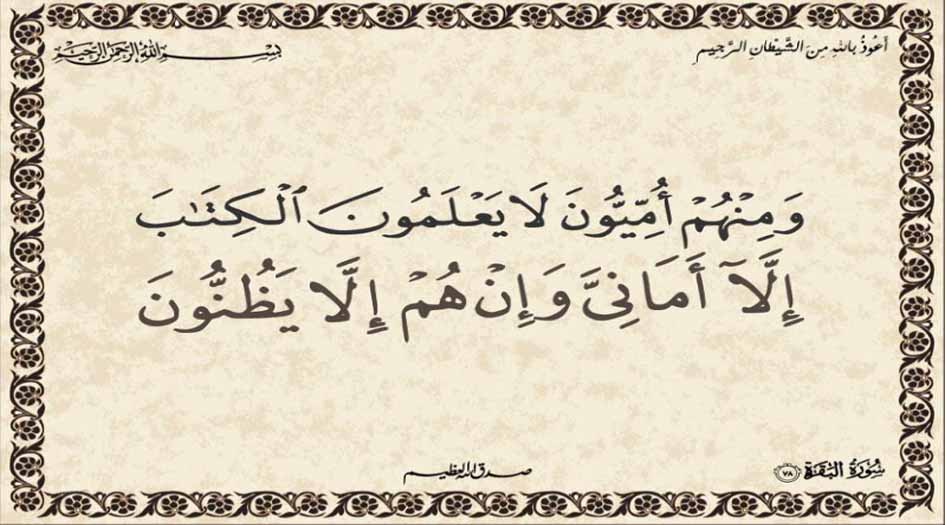 أعوذ بالله من الشيطان الرجيم
بسم الله الرحمن الرحيم
وَمِنْهُمْ أُمِّيُّونَ لَا يَعْلَمُونَ ٱلْكِتَٰبَ
إِلَّآ أَمَانِىَّ وَإِنْ هُمْ إِلَّا يَظُنُّونَ
سُورَةُ البَقَرَة ٧٨
صدق الله العظيم